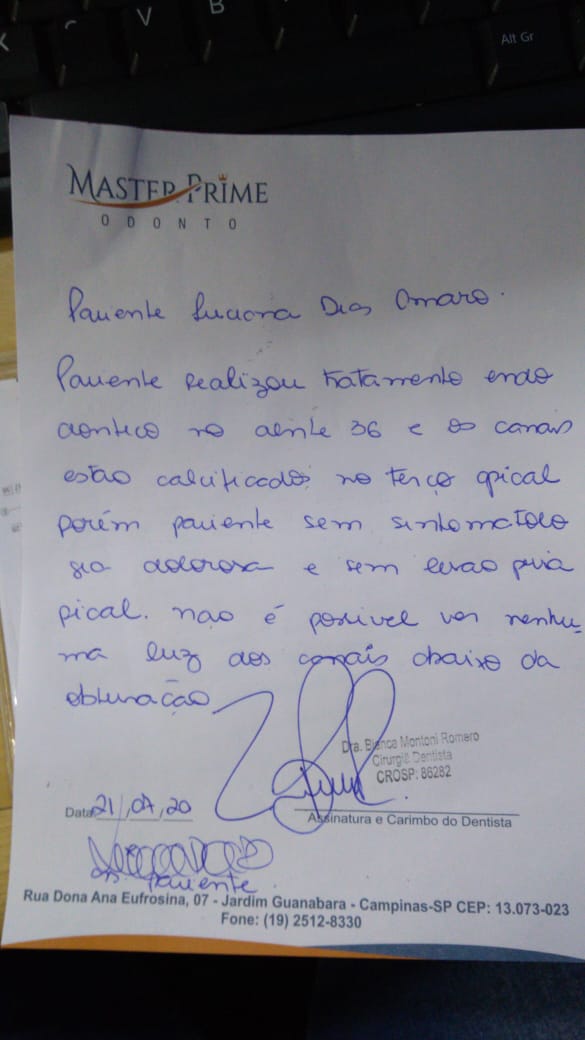 Alt Gr
V
B
MASTER PRIME
ODONTO
Paciente Luciana Dias Amaro.
Paciente realizou tratamento endo
dontico no dente 36 e os canais
estão calcificados no terço apical
porém paciente sem sintomatolo
gia dolorosa e sem lesão peria
pical. não é possivel ver nenhu-
ma luz dos canais abaixo da
obturação
Dra. Bianca Montoni Romero
Cirurgiã Dentista
CROSP: 86282
Data 21/07/20
Assinatura e Carimbo do Dentista
Paciente
Rua Dona Ana Eufrosina, 07 - Jardim Guanabara - Campinas-SP CEP: 13.073-023
Fone: (19) 2512-8330